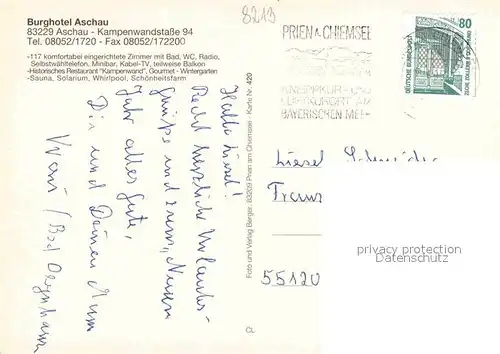 Burghotel Aschau
83229 Aschau - Kampenwandstaße 94
Tel. 08052/1720 - Fax 08052/172200
-117 komfortabel eingerichtete Zimmer mit Bad, WC, Radio,
Selbstwähltelefon, Minibar, Kabel-TV, teilweise Balkon
-Historisches Restaurant "Kampenwand", Gourmet - Wintergarten
-Sauna, Solarium, Whirlpool, Schönheitsfarm
8213
PRIEN A CHIEMSEE
KNEIPPKUR- UND
LUFTKURORT AM
BAYERISCHEN MEER
80
DEUTSCHE BUNDESPOST
Hallo Liesel!
Recht herzliche Urlaubs-
grüsse und zum Neuen
Jahr alles Gute,
Dir und Deinen Mann
/ Bad Oeynhausen
Foto und Verlag Berger, 83209 Prien am Chiemsee · Karte Nr. 420
CL
Liesel
55120
privacy protection
VERSANDHANDEL BOEGER